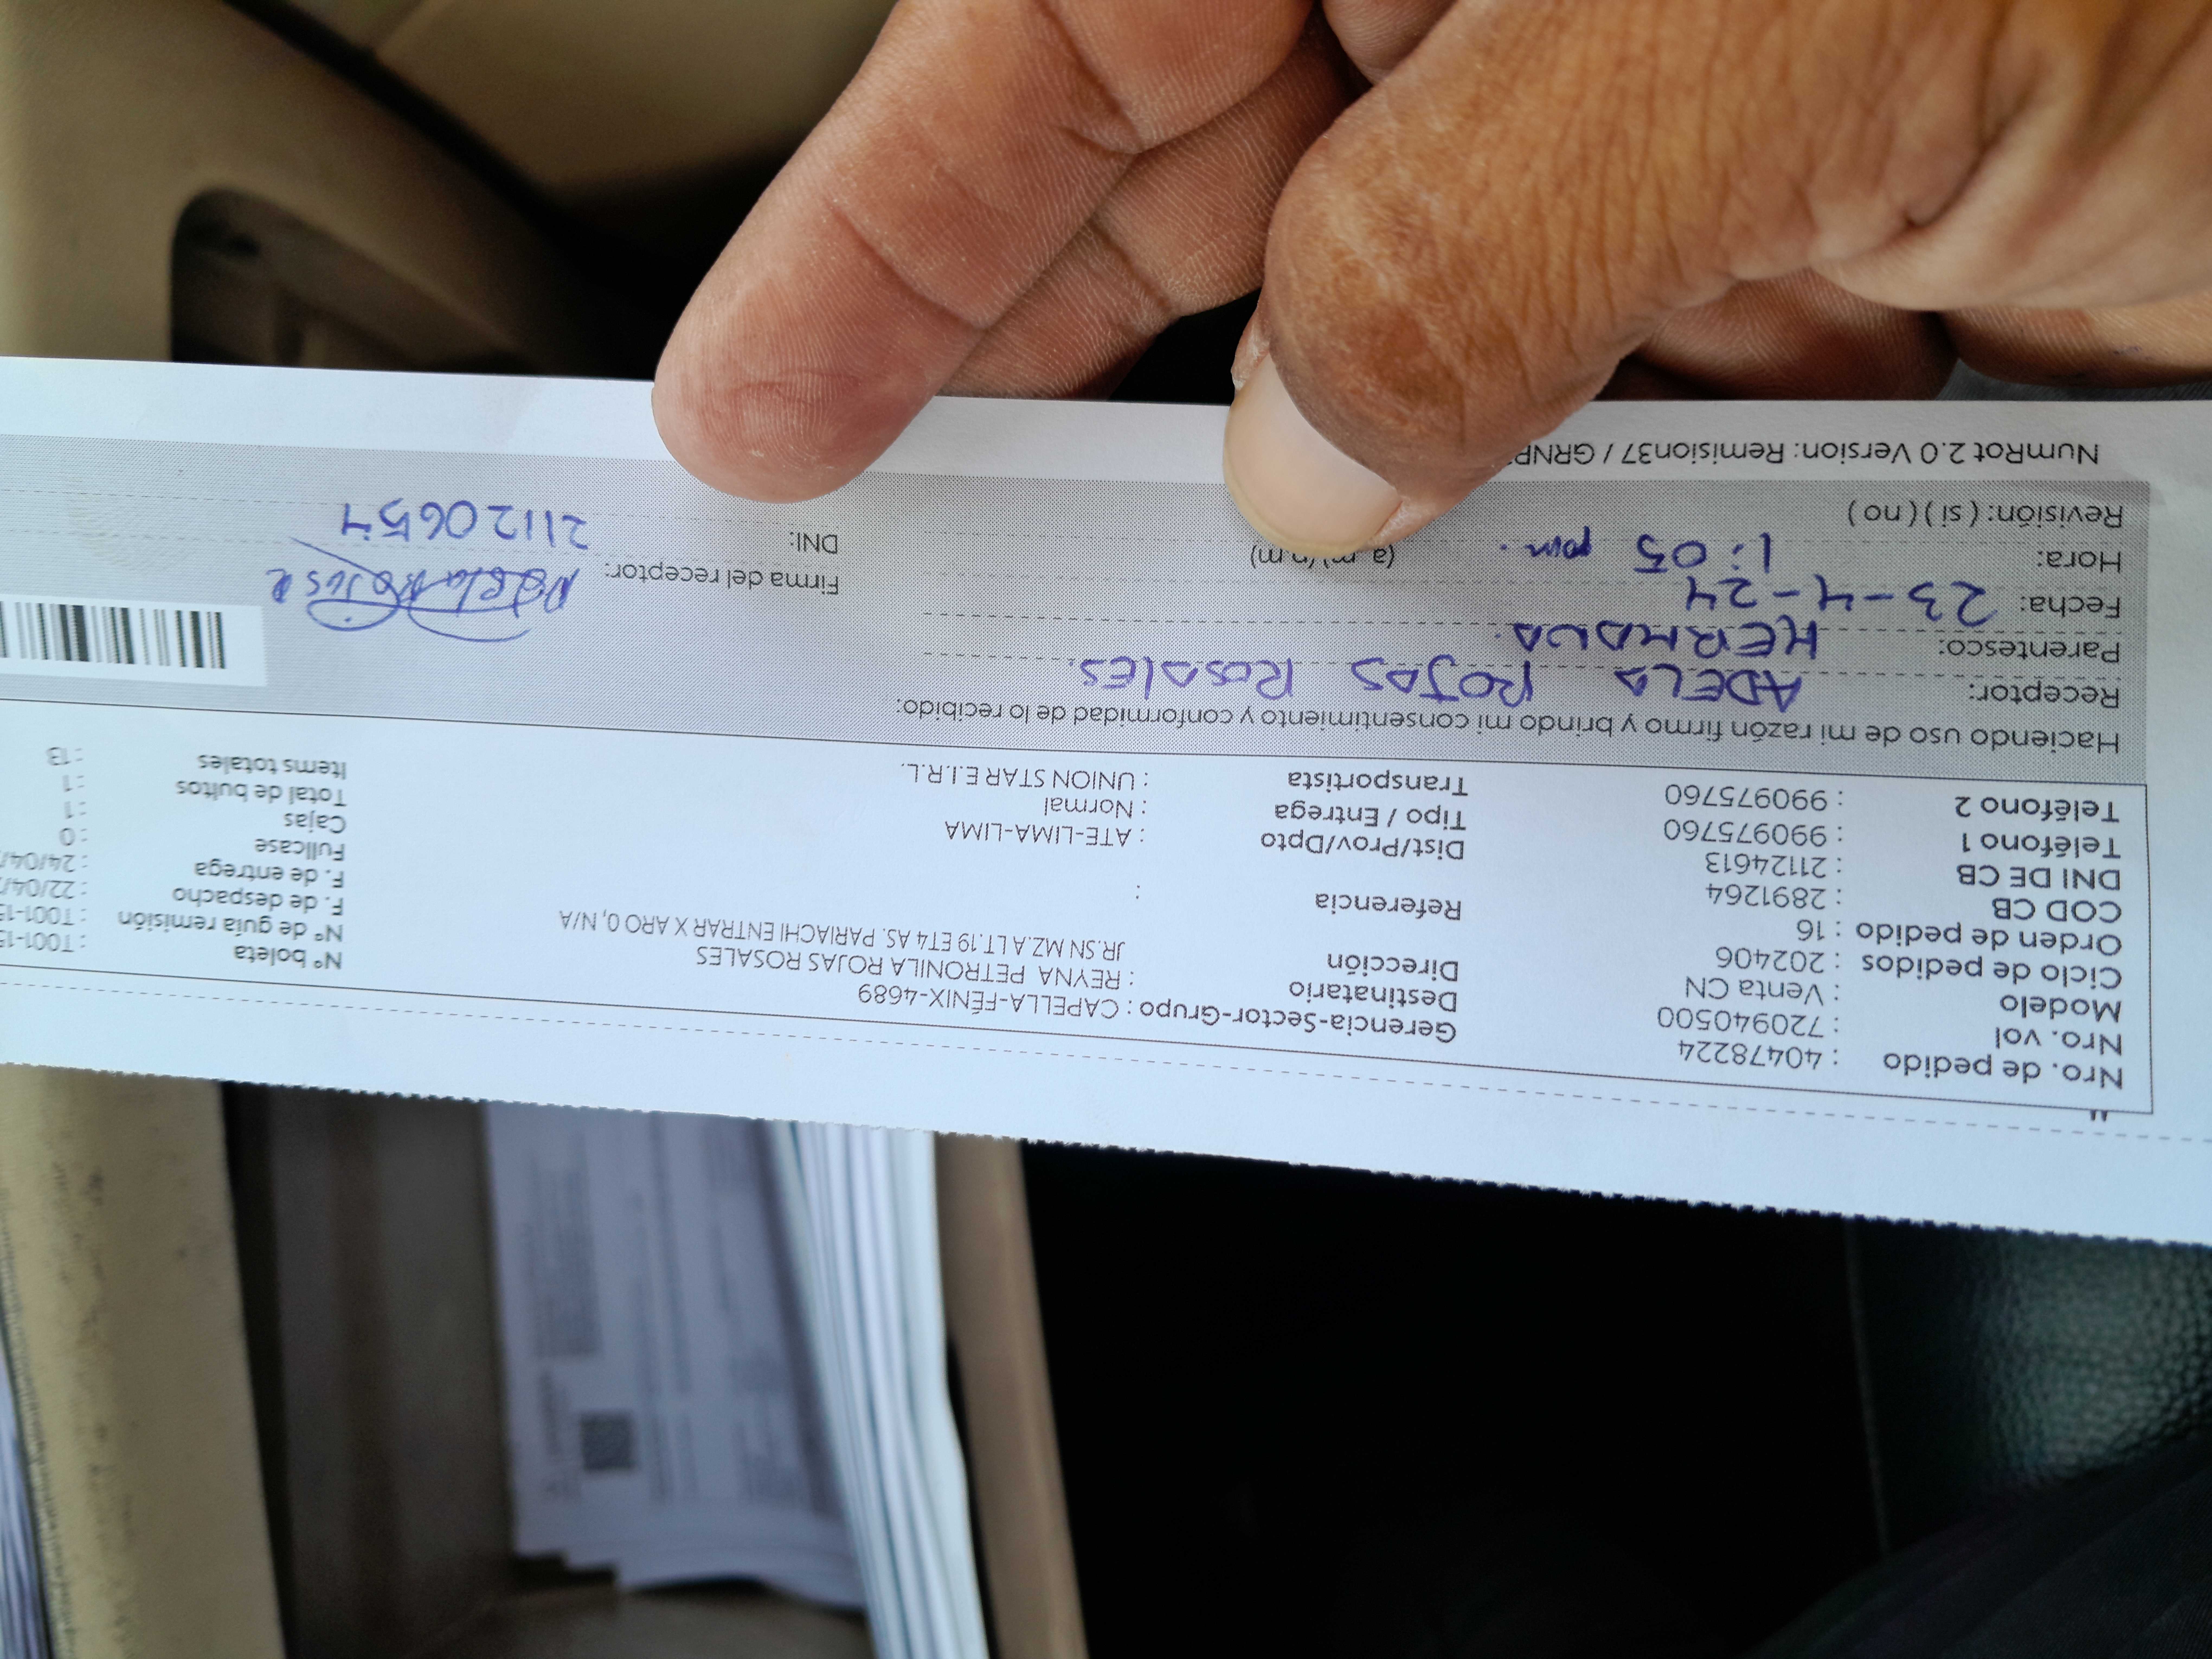 Nro. de pedido : 40478224
Nro. vol : 720940500
Modelo : Venta CN
Ciclo de pedidos : 202406
Orden de pedido : 16
COD CB : 2891264
DNI DE CB : 21124613
Teléfono 1 : 990975760
Teléfono 2 : 990975760
Gerencia-Sector-Grupo : CAPELLA-FÉNIX-4689
Destinatario : REYNA PETRONILA ROJAS ROSALES
Dirección JR.SN MZ.A LT.19 ET4 AS. PARIACHI ENTRAR X ARO 0, N/A
Referencia :
Dist/Prov/Dpto : ATE-LIMA-LIMA
Tipo / Entrega : Normal
Transportista : UNION STAR E.I.R.L.
N° boleta : T001-15
N° de guía remisión : T001-15
F. de despacho : 22/04/
F. de entrega : 24/04/
Fullcase : 0
Cajas : 1
Total de bultos : 1
Items totales : 13
Haciendo uso de mi razón firmo y brindo mi consentimiento y conformidad de lo recibido:
Receptor: ADELA ROJAS ROSALES.
Parentesco: HERMANA.
Fecha: 23-4-24
Hora: 1:05 pm. (a.m)/(p.m)
Revisión: ( si ) ( no )
Firma del receptor: Adela Rojas R
DNI: 21120654
NumRot 2.0 Version: Remision37 / GRNP